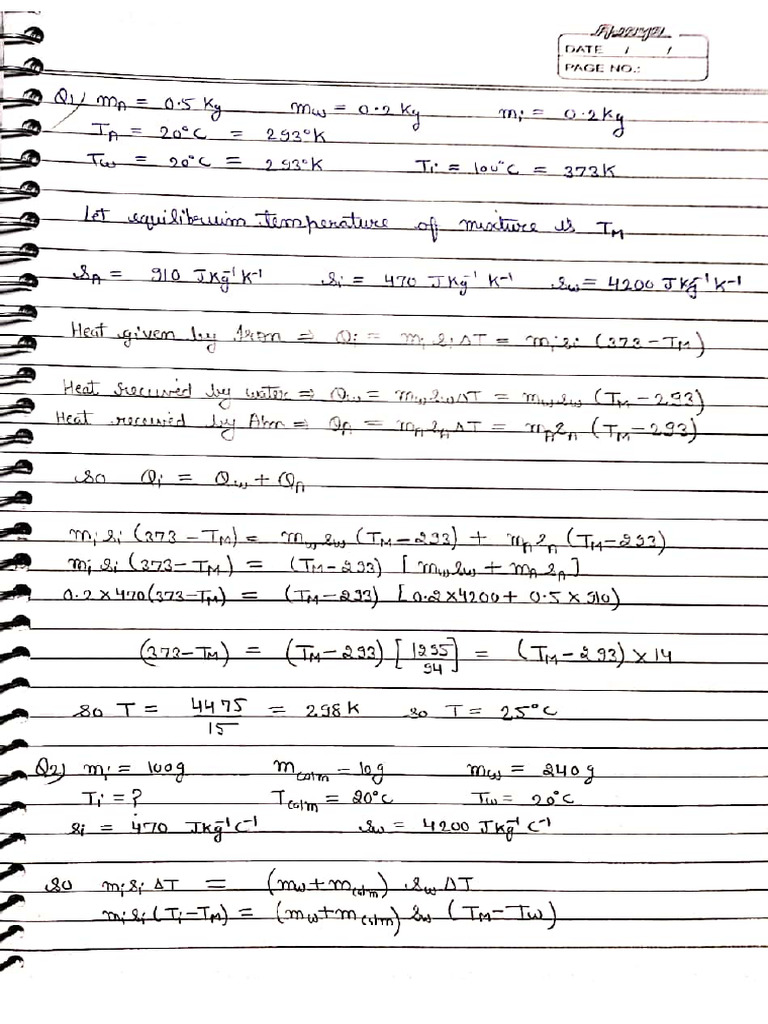 DATE / /
PAGE NO.:
Q1) mA = 0.5 Kg mw = 0.2 Kg mi = 0.2 Kg
TA = 20°C = 293°K
Tw = 20°C = 293°K Ti = 100°C = 373K
Let equilibrium temperature of mixture is TM
sA = 910 JKg⁻¹K⁻¹ si = 470 JKg⁻¹ K⁻¹ sw = 4200 JKg⁻¹K⁻¹
Heat given by Iron ⇒ Qi = mi si ΔT = mi si (373 – TM)
Heat received by water ⇒ Qw = mw sw ΔT = mw sw (TM – 293)
Heat received by Alm ⇒ QA = mA sA ΔT = mA sA (TM – 293)
so Qi = Qw + QA
mi si (373 – TM) = mw sw (TM – 293) + mA sA (TM – 293)
mi si (373 – TM) = (TM – 293) [mw sw + mA sA]
0.2 × 470 (373 – TM) = (TM – 293) [0.2 × 4200 + 0.5 × 910)
(373 – TM) = (TM – 293) [1295/94] = (TM – 293) × 14
so T = 4475/15 = 298 K so T = 25°C
Q2) mi = 100g mcalm = 10g mw = 240 g
Ti = ? Tcalm = 20°C Tw = 20°C
si = 470 JKg⁻¹C⁻¹ sw = 4200 JKg⁻¹ C⁻¹
so mi si ΔT = (mw + mcalm) sw ΔT
mi si (Ti – TM) = (mw + mcalm) sw (TM – Tw)